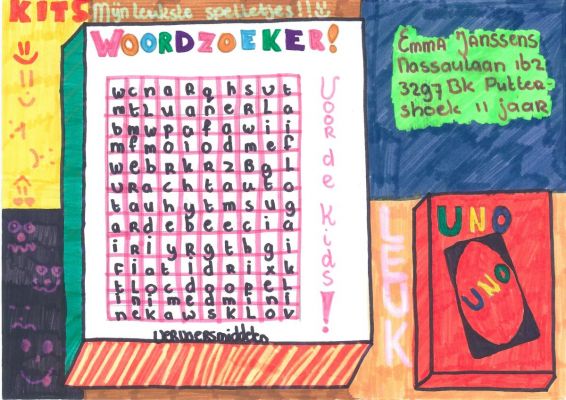 KITS
Mijn leukste spelletjes!!
WOORDZOEKER!
EMMA JANSSENS
Nassaulaan 162
3297 BK Putter-
shoek 11 jaaR
wcnaRqhsut
mtluaneRla
bmwpafawij
mfmolodmef
webRkRzBgl
uRachtauto
tauhytmsug
aRdebeecia
iRiyRgthgi
fiatidRixk
tlocdoopel
inimedmini
nekawsklov
Voor de kids!
LEUK
UNO
UNO